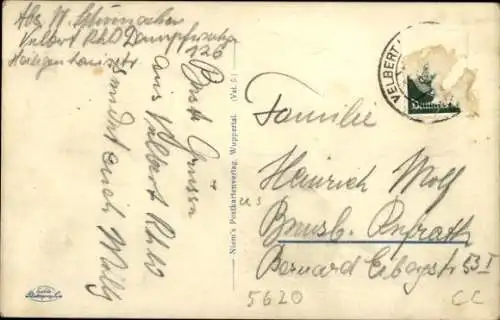 Abs. W. Schumacher
Velbert Rhld Dampf
126
Heiligenhauserstr
Beste Grüsse
aus Velbert Rhld
sendet euch Willy
Niem's Postkartenverlag, Wuppertal. (Vel. 5)
VELBERT
Familie
Heinrich Wolf
Bensb. Refrath
Bernard Eibergstr 53 I
5620
CC